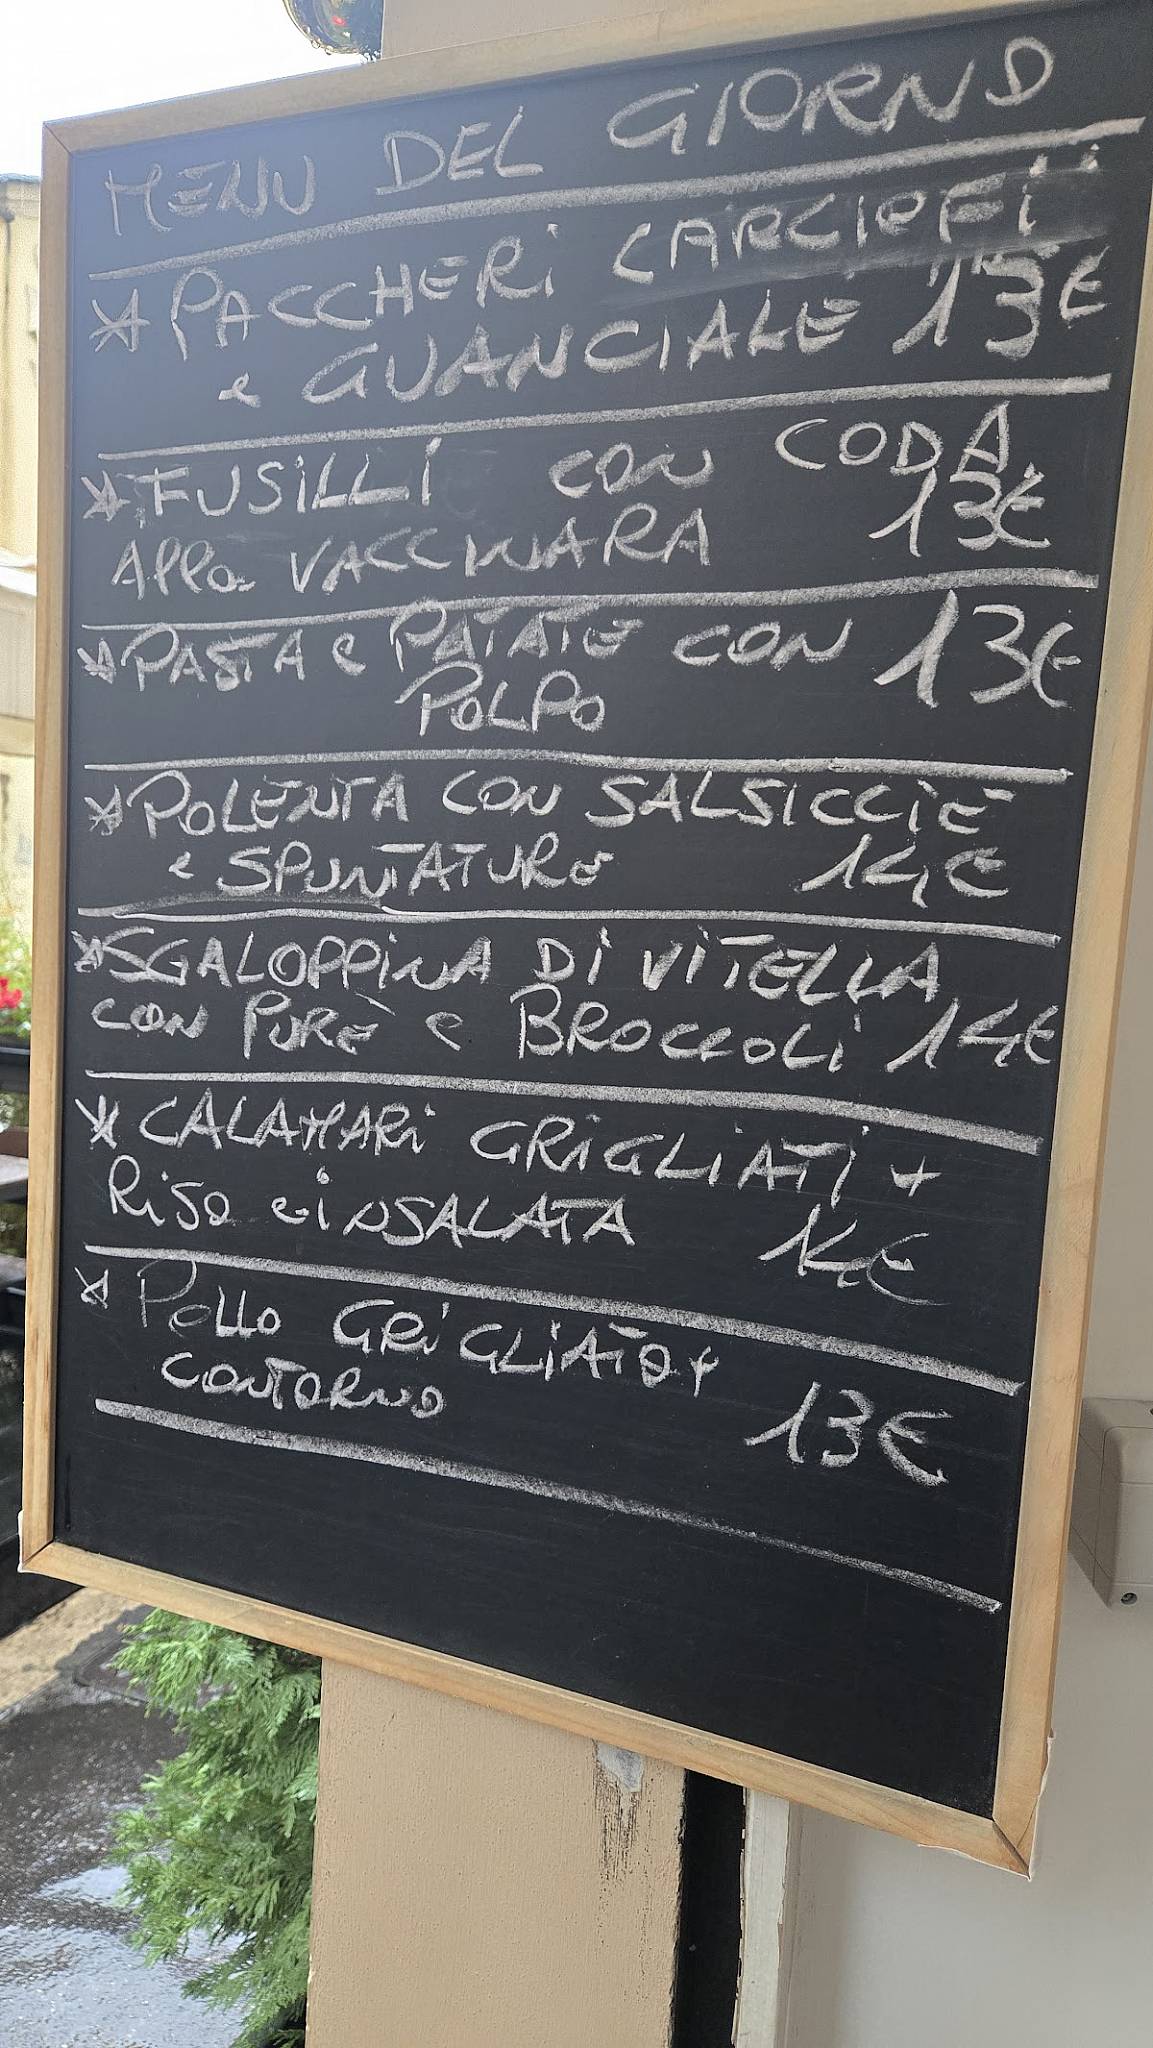 MENU DEL GIORNO
* PACCHERI CARCIOFI
e GUANCIALE 13€
* FUSILLI CON CODA
Alla VACCINARA 13€
* PASTA e PATATE CON 13€
POLPO
* POLENTA CON SALSICCIE
e SPUNTATURE 14€
* SGALOPPINA DI VITELLA
CON PURÈ e BROCCOLI 14€
* CALAMARI GRIGLIATI +
RISO e INSALATA 14€
* Pollo GRIGLIATO +
CONTORNO 13€